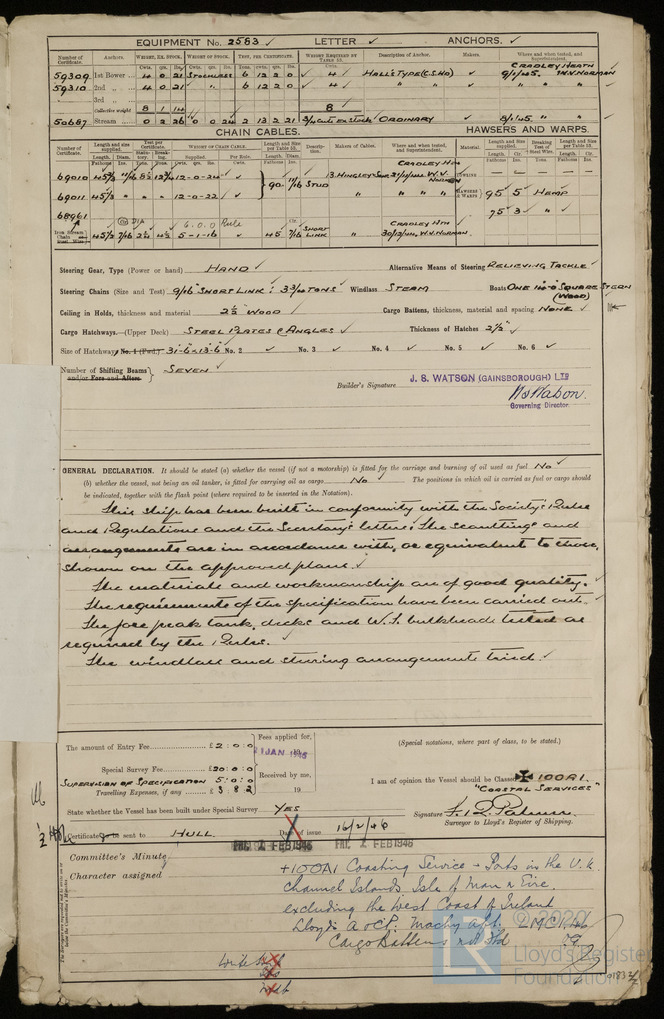 EQUIPMENT No. 2583 ✓ LETTER ✓ ANCHORS. ✓
Number of Certificate. Anchors. WEIGHT, EX. STOCK. WEIGHT OF STOCK. TEST, PER CERTIFICATE. WEIGHT REQUIRED BY TABLE 53. Description of Anchor. Makers. Where and when tested, and Superintendent.
Cwts. qrs. lbs. Cwts. qrs. lbs. Tons. cwts. qrs. lbs. Cwts.
CRADLEY HEATH
59309 1st Bower 4 0 21 STOCKLESS 6 12 2 0 ✓ 4 ✓ HALL'S TYPE (C.S.HD) ✓ 9/1/45. W.V. NORMAN
59310 2nd „ 4 0 21 „ 6 12 2 0 ✓ 4 ✓ „ „ „ ✓ „ „ „
3rd „
Collective weight 8 1 14 8
50687 Stream 0 2 26 0 0 24 2 13 2 21 ORDINARY ✓ 8/1/45 „ „
CHAIN CABLES. HAWSERS AND WARPS.
Number of Certificate. Length and size supplied. Test per Certificate WEIGHT OF CHAIN CABLE. Length and Size per Table 53. Description. Makers of Cables. Where and when tested, and Superintendent. Material. Length and Size supplied. Breaking Test of Steel Wire. Length and Size per Table 53.
Fathoms Diam. Statutory. Breaking. Supplied. Per Rule. Fathoms Diam. Fathoms Cir. Fathoms Cir.
69010 45 2/3 11/16 12-0-24 ✓ 90 11/16 STUD N. HINGLEY W.V. NORMAN
69011 45 2/3 „ „ „ 12-0-22 ✓ HAWSERS & WARPS 95 5 HEMP
75 3 „ ✓
68961
Iron Stream Chain or Steel Wire 45 2/3 7/16 6.0.0 Rule 5-1-16 ✓ 45 7/16 SHORT LINK „ CRADLEY HTH 30/12/44. W.V. NORMAN.
Steering Gear, Type (Power or hand) HAND ✓ Alternative Means of Steering RELIEVING TACKLE ✓
Steering Chains (Size and Test) 9/16" SHORT LINK : TONS ✓ Windlass STEAM Boats ONE SQUARE STERN
(WOOD)
Ceiling in Holds, thickness and material 2½" WOOD ✓ Cargo Battens, thickness, material and spacing NONE ✓
Cargo Hatchways.—(Upper Deck) STEEL PLATES & ANGLES ✓ Thickness of Hatches 2½" ✓
Size of Hatchways No. 1 (Fwd.) 31'-6" x 13'-6" No. 2 ✓ No. 3 ✓ No. 4 ✓ No. 5 ✓ No. 6 ✓
Number of Shifting Beams and/or Fore and Afters. } SEVEN ✓
Builder's Signature J. S. WATSON (GAINSBOROUGH) LTD
Watson.
Governing Director.
GENERAL DECLARATION. It should be stated (a) whether the vessel (if not a motorship) is fitted for the carriage and burning of oil used as fuel No ✓
(b) whether the vessel, not being an oil tanker, is fitted for carrying oil as cargo No ✓ The positions in which oil is carried as fuel or cargo should
be indicated, together with the flash point (where required to be inserted in the Notation).
This ship has been built in conformity with the Society's Rules
and Regulations and the Secretary's letters. The scantlings and
arrangements are in accordance with, or equivalent to those,
shown on the approved plans. ✓
The materials and workmanship are of good quality. ✓
The requirements of the specification have been carried out. ✓
The fore peak tank, decks and W.T. bulkheads tested as
required by the Rules. ✓
The windlass and steering arrangements tried. ✓
The amount of Entry Fee £ 2 : 0 : 0
Special Survey Fee £20 : 0 : 0
SUPERVISION OF SPECIFICATION 5 : 0 : 0
Travelling Expenses, if any £ 3 8 2
Fees applied for,
JAN 1946
Received by me,
19
(Special notations, where part of class, to be stated.)
I am of opinion the Vessel should be Classed ✠ 100A1
"COASTAL SERVICES"
State whether the Vessel has been built under Special Survey YES
Signature
Surveyor to Lloyd's Register of Shipping.
Certificate to be sent to HULL Date of issue 16/2/46
FRI. 1 FEB 1946
Committee's Minute
Character assigned
+100A1 Coasting Service - Ports in the U.K.
Channel Islands, Isle of Man & Eire.
excluding the West Coast of Ireland
Lloyd's A & CP. Machy aft. LMC 1.46
Cargo Battens not ftd
Write
© 2020
Lloyd's Register
Foundation